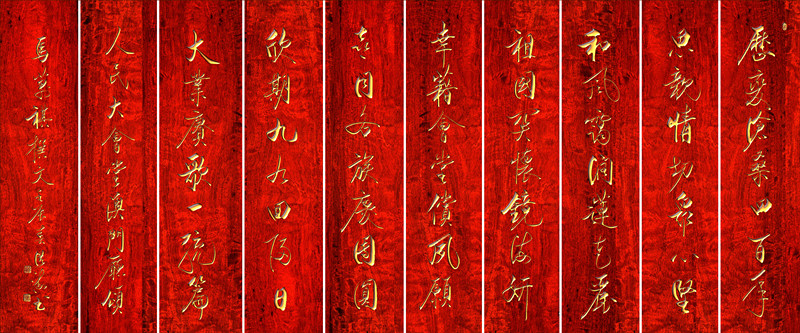 歷變滄桑四百年
思親情切眾心堅
和風霑潤蓮花麗
祖國懷鏡海妍
幸籍會堂償夙願
喜同各族慶團圓
欣期九九回歸日
大業賡歌一統篇
人民大會堂澳門廳頌
馬萬祺撰文書